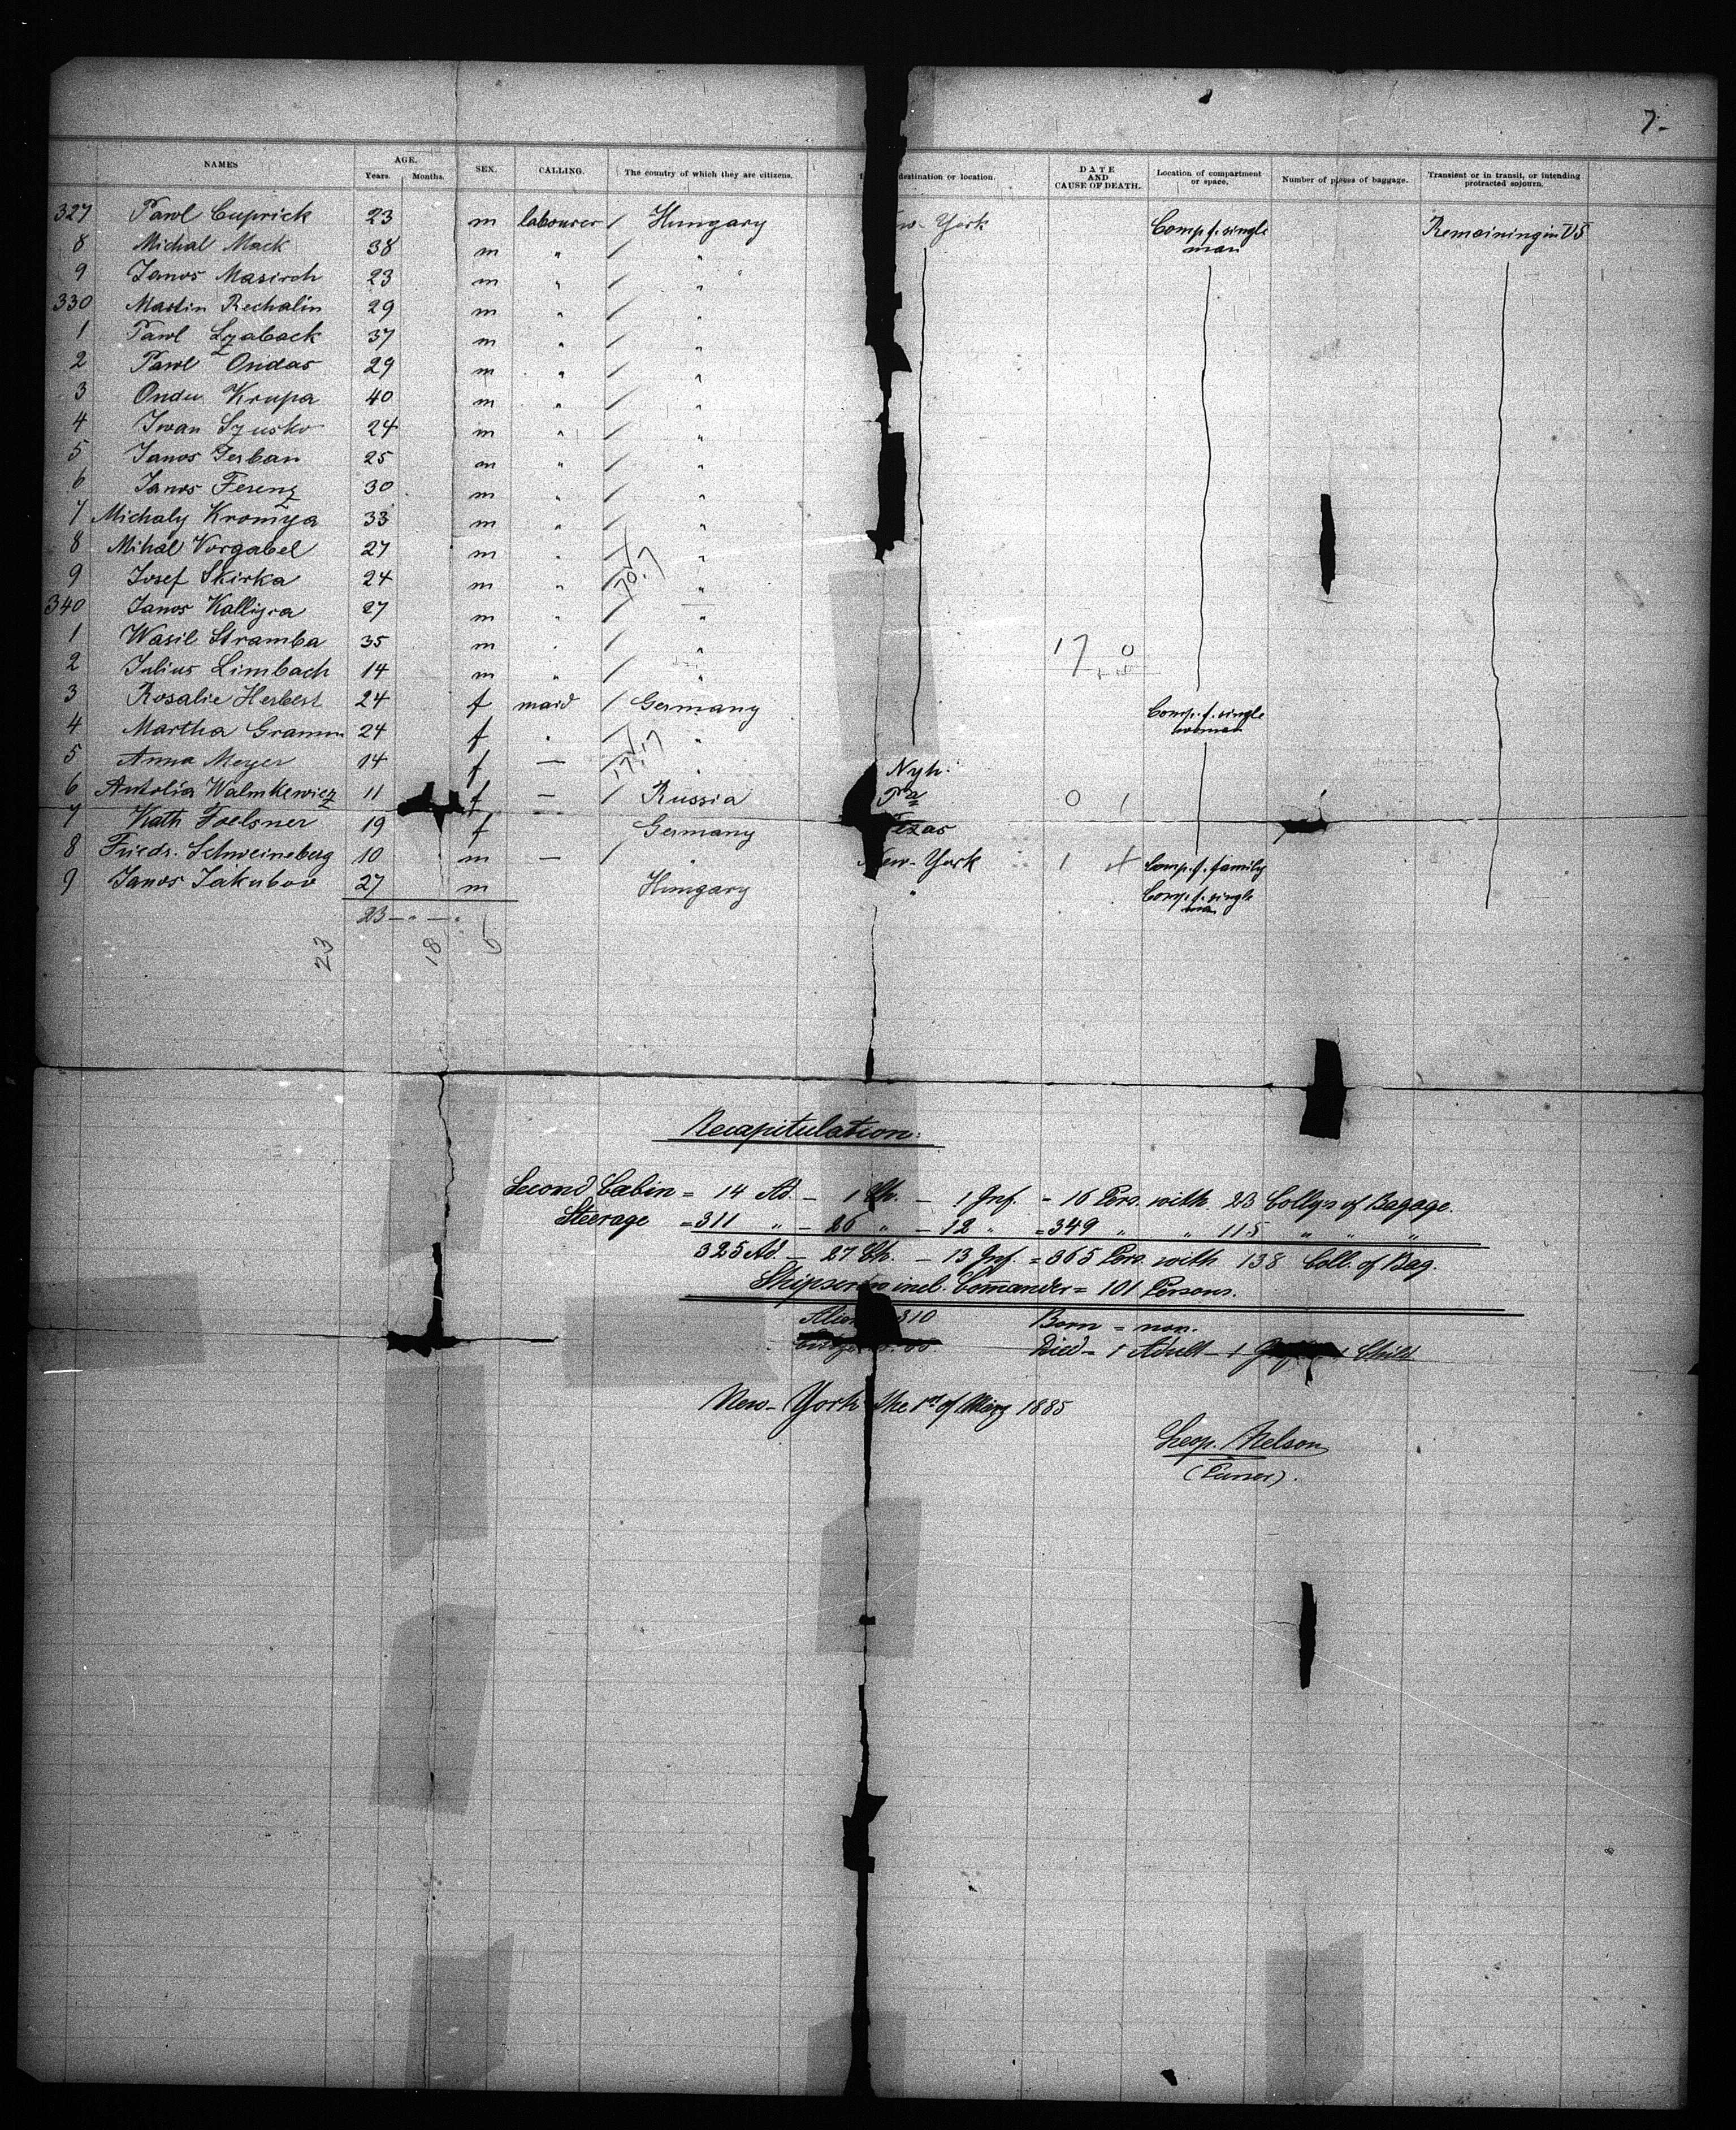 7.
NAMES AGE. Years. Months. SEX. CALLING. The country of which they are citizens. destination or location. DATE AND CAUSE OF DEATH. Location of compartment or space. Number of pieces of baggage. Transient or in transit, or intending protracted sojourn.
327 Pawl Cuprick 23 m labourer / Hungary York Comp. f. single man Remaining in US
8 Michal Mack 38 m " / "
9 Janos Masirch 23 m " / "
330 Martin Rechalin 29 m " / "
1 Pawl Szaback 37 m " / "
2 Pawl Ondas 29 m " / "
3 Ondu Krupa 40 m " / "
4 Iwan Szusko 24 m " / "
5 Janos Terban 25 m " / "
6 Janos Ferenz 30 m " / "
7 Michaly Kromya 33 m " / "
8 Mihal Vorgabel 27 m " / "
9 Josef Skirka 24 m " / "
340 Janos Kalligra 27 m " / "
1 Wasil Stramba 35 m " / " 17 0
2 Julius Limbach 14 m " / "
3 Rosalie Herbert 24 f maid / Germany Comp. f. single woman
4 Martha Gramm 24 f " / "
5 Anna Meyer 14 f — / "
6 Antolia Walmkewicz 11 f — / Russia Pa 0 1
7 Kath Foelsner 19 f Germany Texas
8 Friedr. Schweineberg 10 m — / " New-York 1 Comp. f. family
9 Janos Jakubov 27 m Hungary " Comp. f. single man
23 — " — "
23 18 5
Recapitulation:
Second Cabin = 14 Ad. — 1 Ch. — 1 Inf. = 16 Pers. with 23 Colly's of Bagage.
Steerage = 311 " — 26 " — 12 " = 349 " " 115 " " "
325 Ad. — 27 Ch. — 13 Inf. = 365 Pers. with 138 Coll. of Bag.
incl. Commander = 101 Persons.
310 Born = non.
Died = 1 Adult — 1 Child
New-York the 1st of 1885
Leop. Nelson
(Purser).